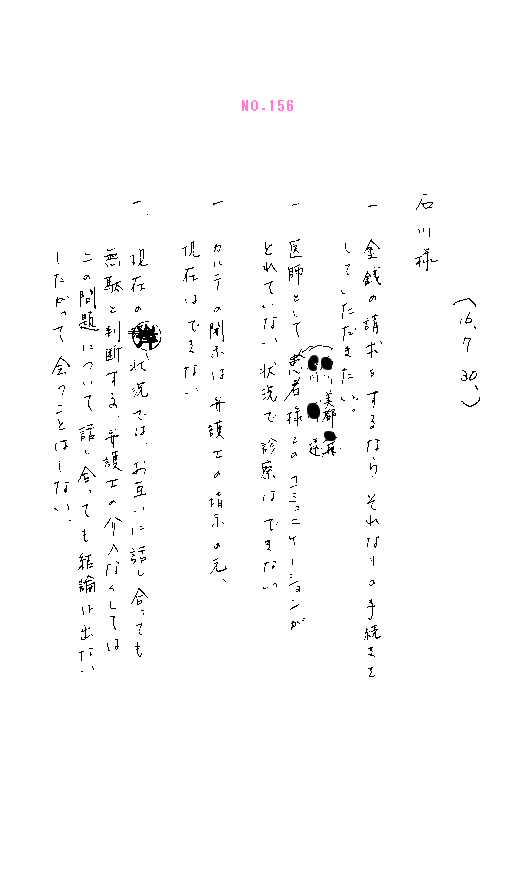 NO.156
（16.7.30.）
石川様
一 金銭の請求をするなら、それなりの手続きを
していただきたい。
川 美都
川
一 医師として患者様とのコミュニケーションが
とれていない状況で診察はできない
一 カルテの開示は弁護士の指示の元、
現在はできない
一、現在の状況では、お互いに話し合っても
無駄と判断する、弁護士の介入なくしては
この問題について話し合っても結論は出ない
したがって会うことはしない、